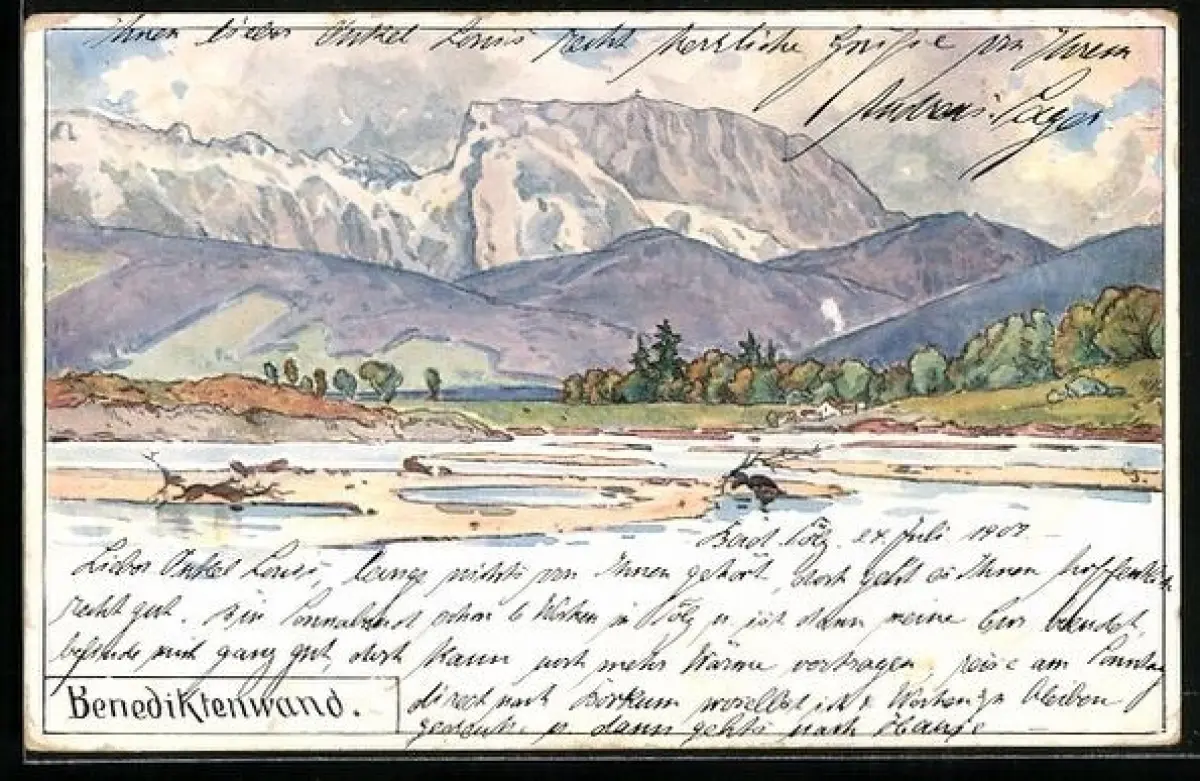 Ihnen lieber Onkel Louis recht herzliche Grüße von Ihrem
Andreas
Bad Tölz. 24. Juli
Lieber Onkel Louis, lange nichts von Ihnen gehört, doch geht es Ihnen hoffentlich
recht gut. Bin Sonnabend schon 6 Wochen in Tölz u. ist dann meine Cur beendet,
befinde mich ganz gut, doch kann noch mehr Wärme vertragen, reise am Sonntag
direct nach Borkum woselbst ich Wochen zu bleiben
gedenke u. dann gehts nach Hause
Benediktenwand.